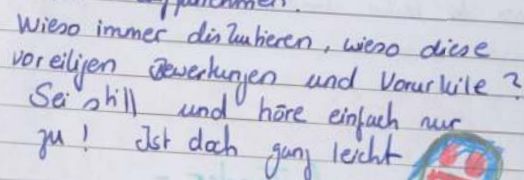 Wieso immer diskutieren, wieso diese
voreiligen Bewertungen und Vorurteile?
Sei still und höre einfach nur
zu! Ist doch ganz leicht